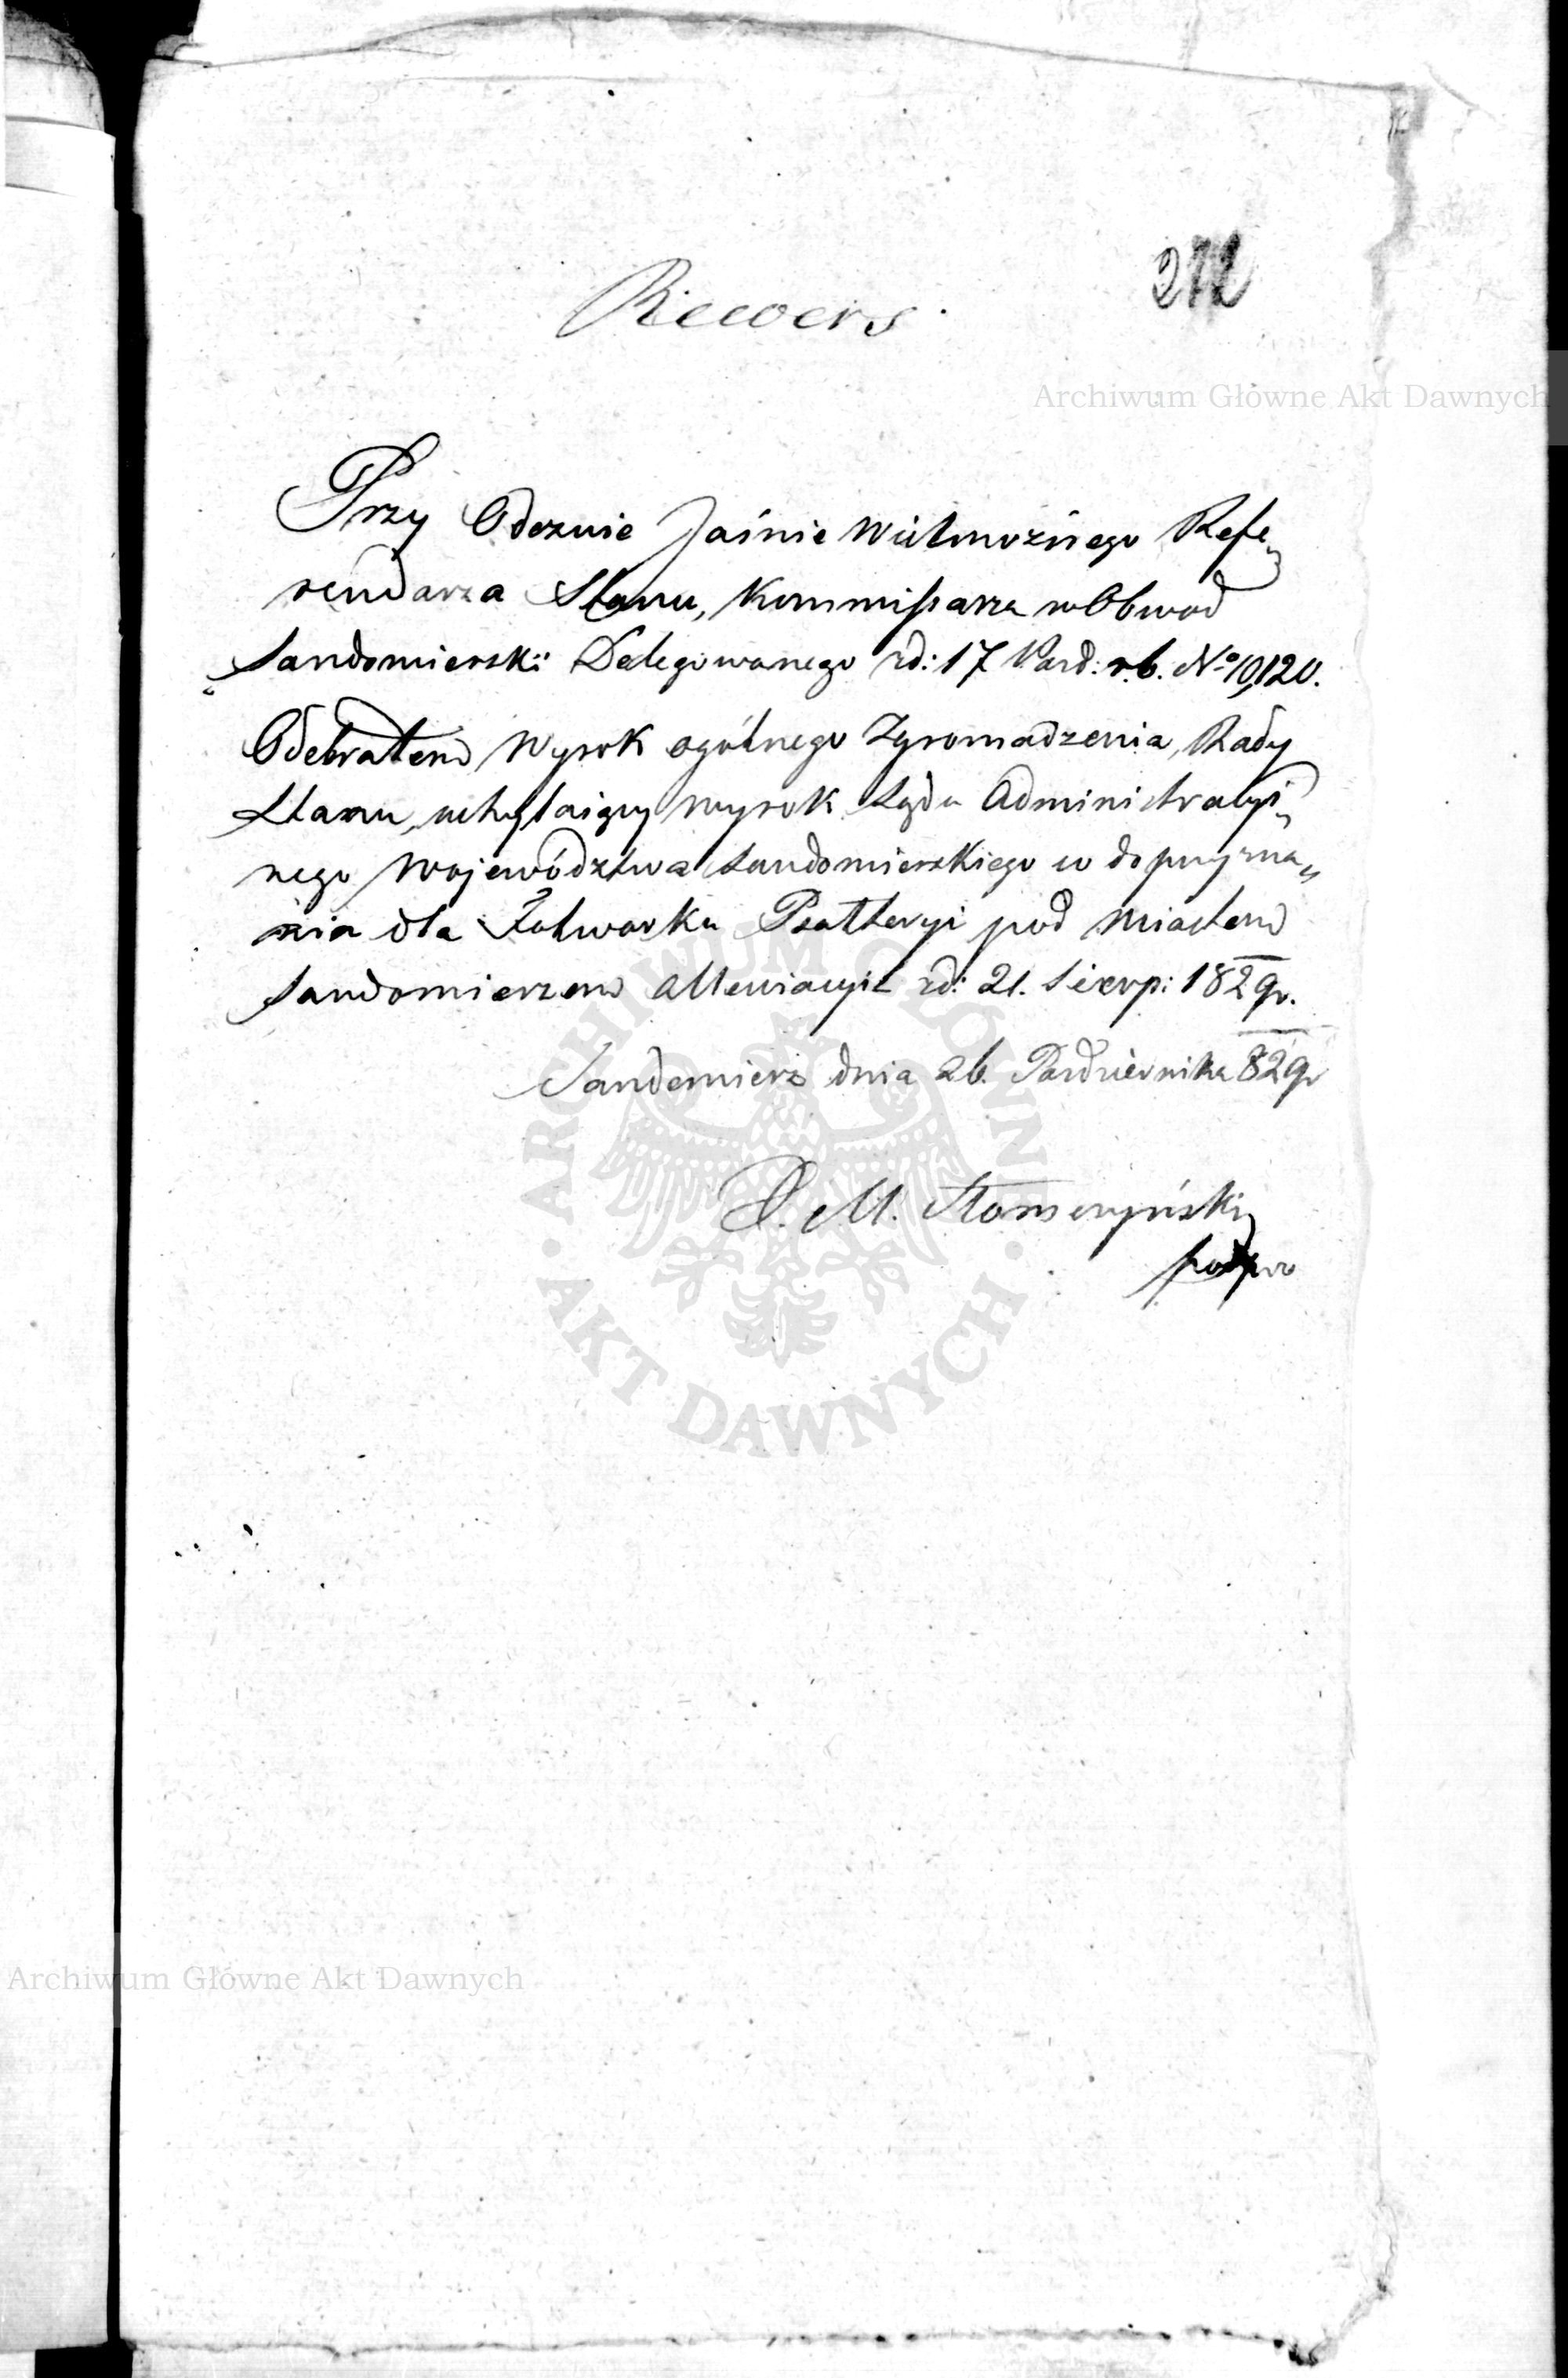 272
Rewers.
Archiwum Główne Akt Dawnych
Przy Odezwie Jaśnie Wielmożnego Refe„
rendarza Stanu, Kommissarza w Obwod
Sandomierski Delegowanego zd: 17 Pazd: r.b. No 10,120.
Odebrałem Wyrok ogólnego Zgromadzenia, Rady
Stanu, uchylaiący wyrok Sądu Administracyi„
nego Województwa Sandomierskiego co do przyzna„
nia dla Folwarku Psałteryi pod Miastem
Sandomierzem Allewiacyi zd: 21. Sierp: 1829 r.
Sandomierz dnia 26. Pazdziernika 829 r
ARCHIWUM GŁÓWNE · AKT DAWNYCH ·
Archiwum Główne Akt Dawnych